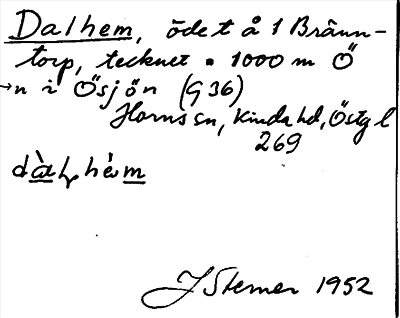 Dalhem, ödet å 1 Bränn-
torp, tecknet • 1000 m Ö
→n i Ösjön (G 36)
Horns sn, Kinda hd, Östg l
269
J Sterner 1952